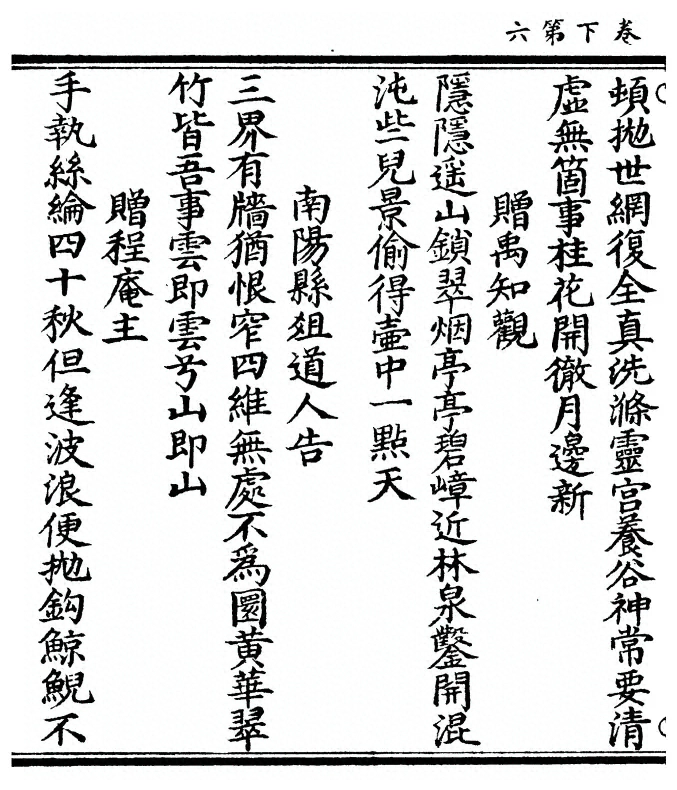 卷下第六
頓抛世網復全真洗滌靈宮養谷神常要清
虛無箇事桂花開徹月邊新
贈禹知觀
隱隱遥山鎖翠烟亭亭碧嶂近林泉鑿開混
沌些兒景偷得壷中一點天
南陽縣爼道人告
三界有牆猶恨窄四維無處不爲圜黄華翠
竹皆吾事雲即雲兮山即山
贈程庵主
手執絲綸四十秋但逢波浪便抛鈎鯨鯢不